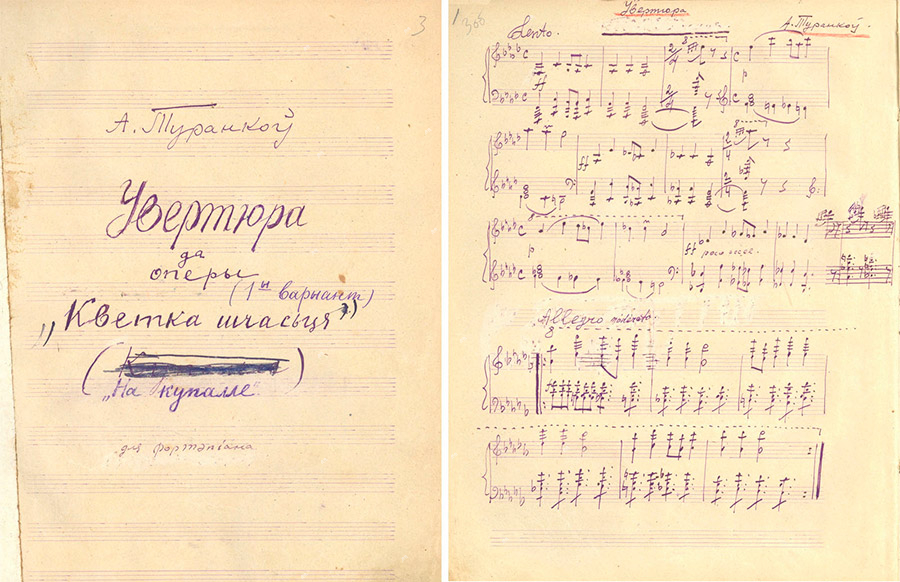 3
А. Туранкоў
Увертюра
да
оперы
(1ы варыант)
„Кветка шчасьця")
(
)
„На купалле"
для фортэпіана
1
306
Увертюра
А. Туранкоў.
Lento.
8
ff
p
8
ff
p
ff poco meno.
Allegro moderato.
8